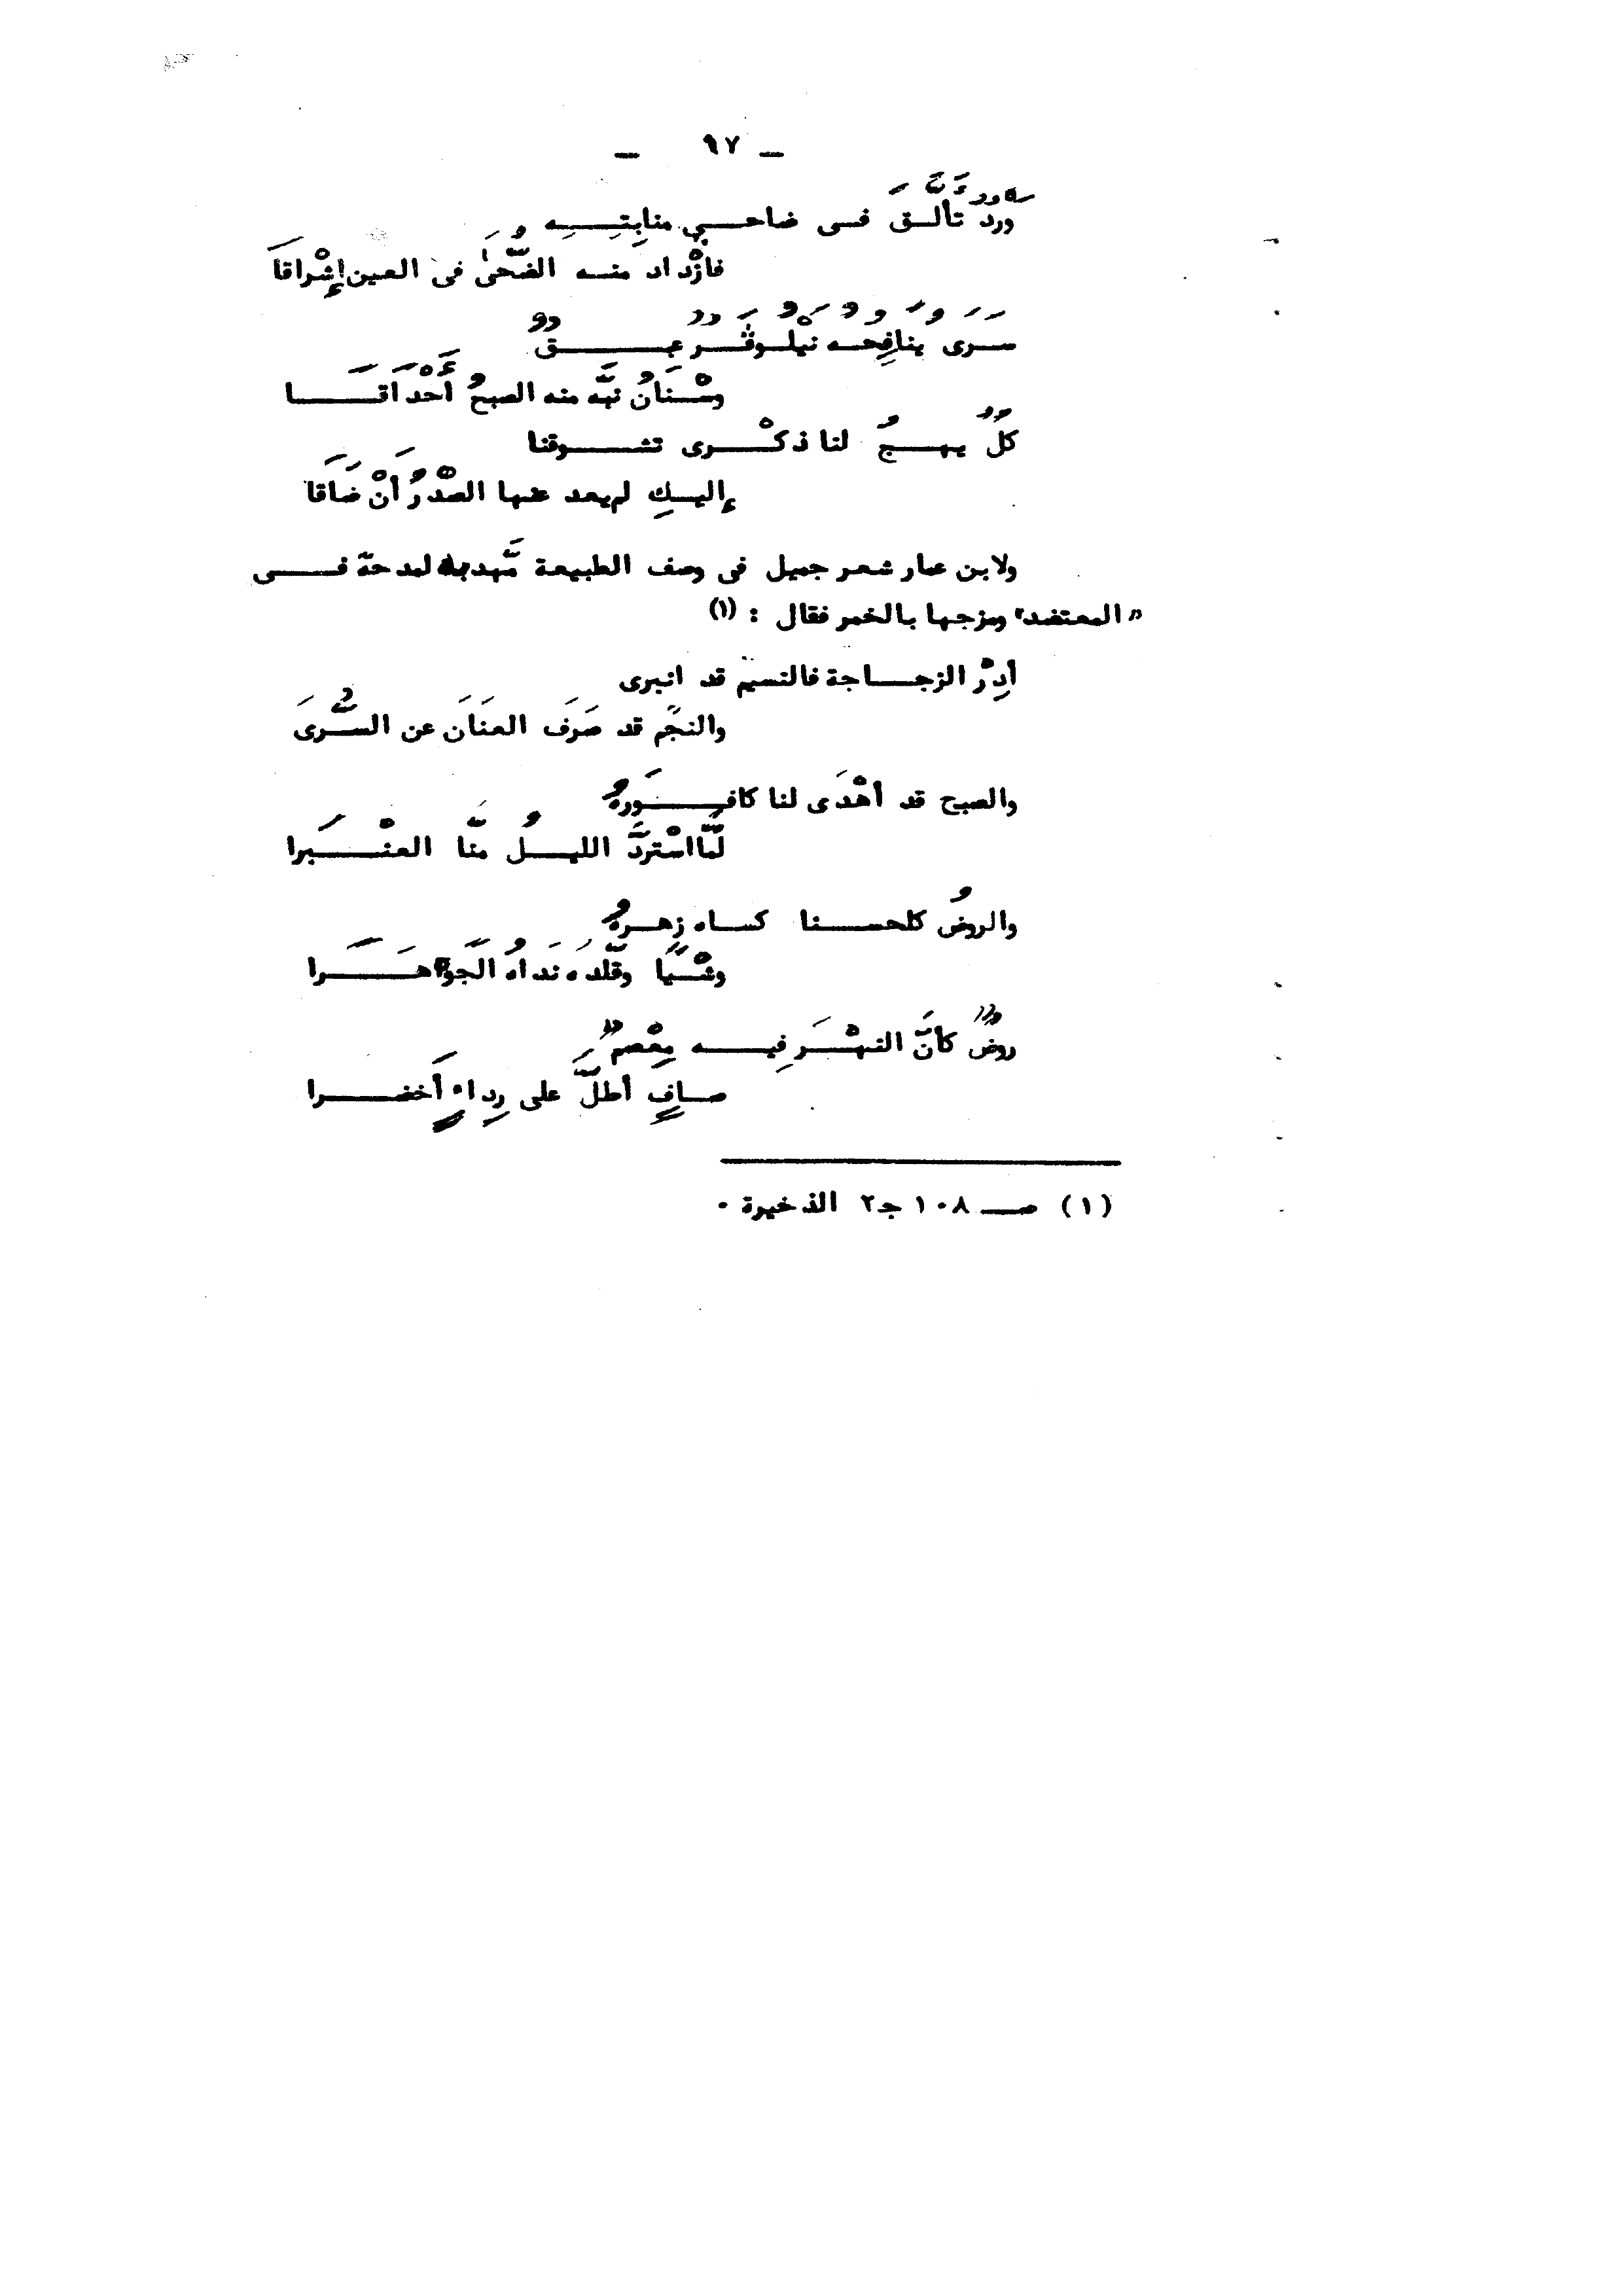 – ٩٧ –
وَرْدٌ تَأَلَّقَ فى ضاحي منابِتِهِ
فازْداد منه الضُّحىٰ فى العين إِشْراقاَ
سرى ينافِحه نيلوفر عبق
وسْنَانُ نبّه منه الصبحُ أَحْدَاقَا
كلٌّ يهيجُ لنا ذكْرى تشوقنا
إليكِ لم يعد عنها الصّدْرُ أنْ ضَاقَا
ولابن عمار شعر جميل فى وصف الطبيعة مّهدبه لمدحة فى
"المعتضد" ومزجها بالخمر فقال : (١)
أدِرْ الزجاجة فالنسيم قد انبرى
والنجْم قد صَرَف العنَانَ عن السُّرىَ
والصبح قد أهْدَى لنا كافورهُ
لَمَّا اسْتردَّ الليلُ منّا العنْبَرا
والروضُ كلحسنا كساه زهرهُ
وشْيًا وقلّده نداهُ الجَواهَرا
روضٌ كأنَّ النهْرَ فيه مِعْصمٌ
صافٍ أطلَّ على رِداءٍ أَخضرا
(١) صـ ١٠٨ جـ٢ الذخيرة .